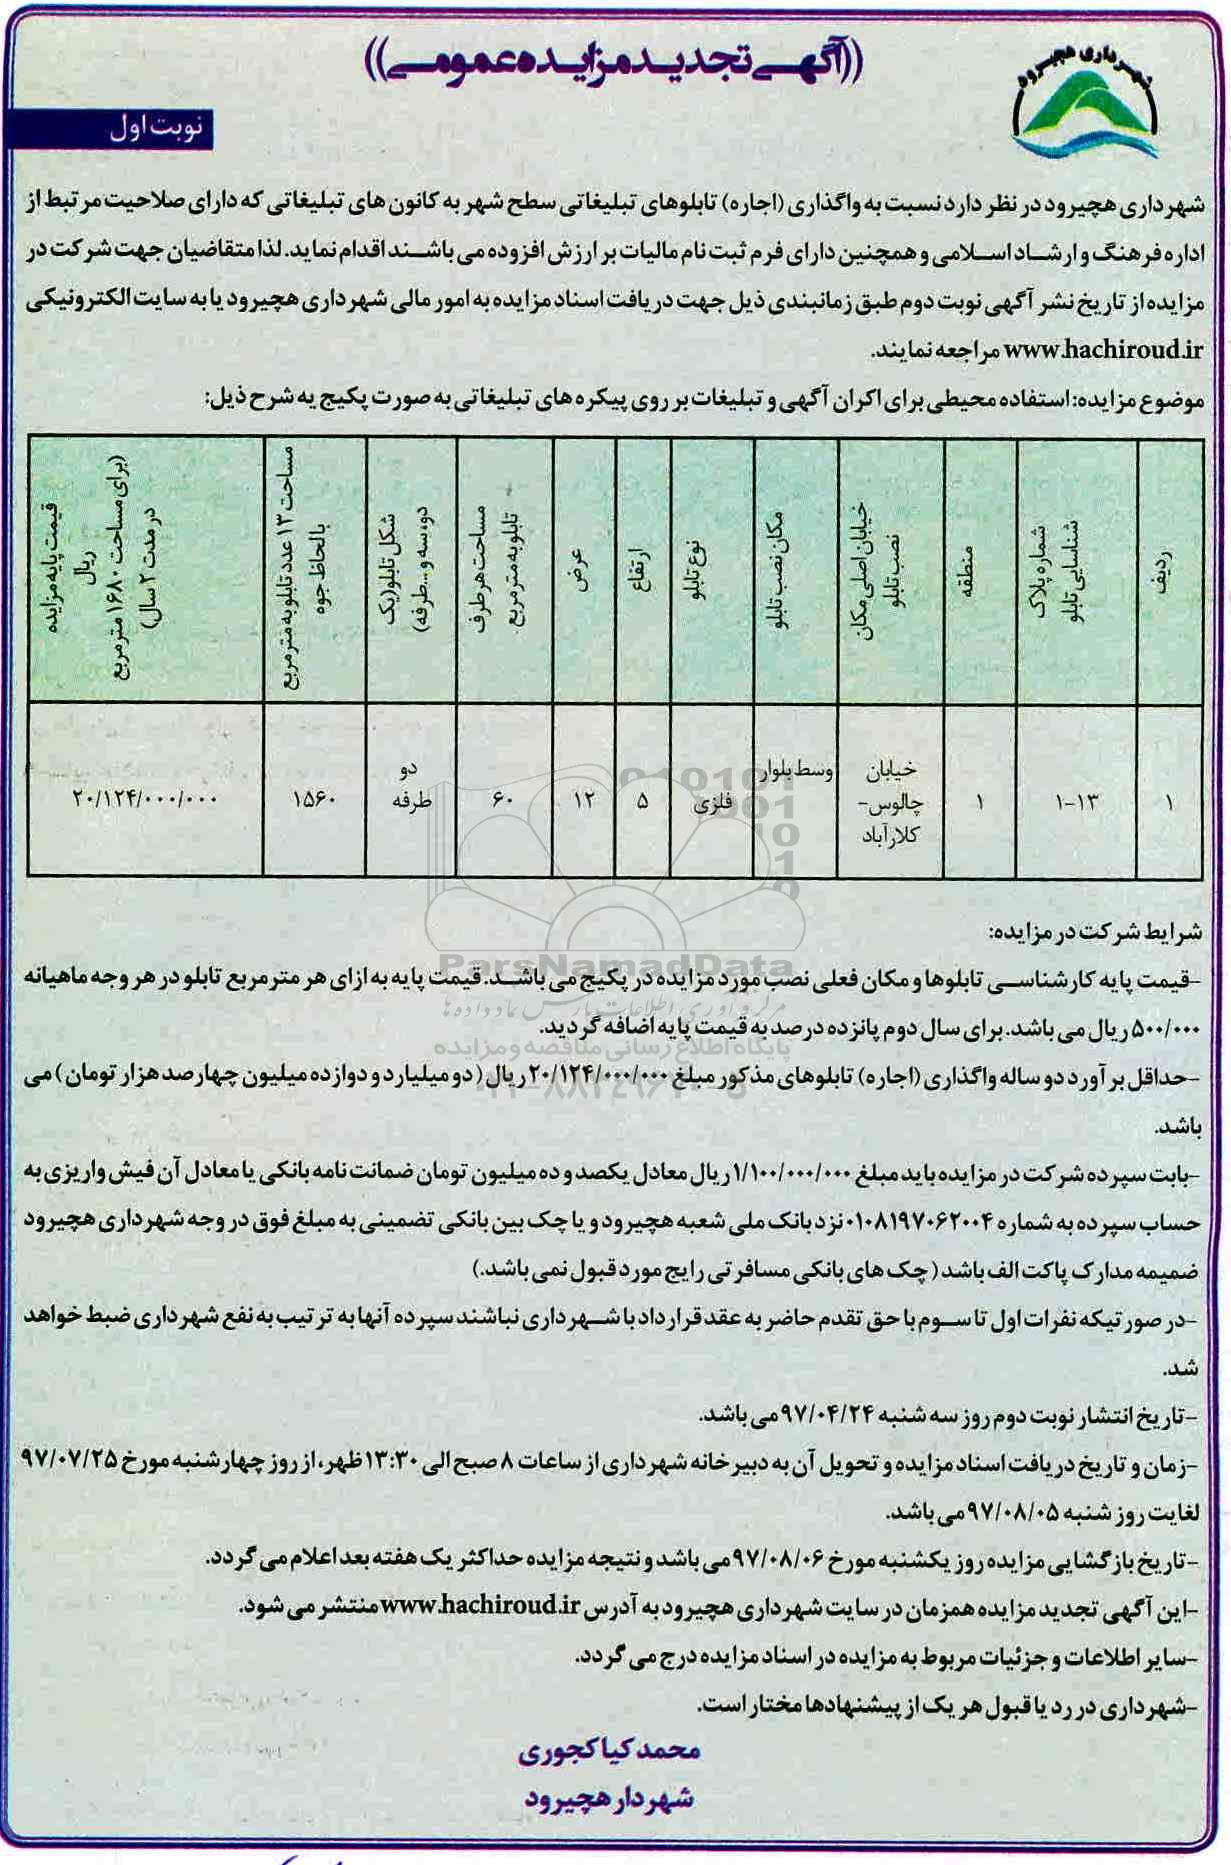 ((آگهی تجدید مزایده عمومی))
شهرداری هچیرود
نوبت اول
شهرداری هچیرود در نظر دارد نسبت به واگذاری (اجاره) تابلوهای تبلیغاتی سطح شهر به کانون های تبلیغاتی که دارای صلاحیت مرتبط از
اداره فرهنگ و ارشاد اسلامی و همچنین دارای فرم ثبت نام مالیات بر ارزش افزوده می باشند اقدام نماید. لذا متقاضیان جهت شرکت در
مزایده از تاریخ نشر آگهی نوبت دوم طبق زمانبندی ذیل جهت دریافت اسناد مزایده به امور مالی شهرداری هچیرود یا به سایت الکترونیکی
www.hachiroud.ir مراجعه نمایند.
موضوع مزایده: استفاده محیطی برای اکران آگهی و تبلیغات بر روی پیکره های تبلیغاتی به صورت پکیج یه شرح ذیل:
ردیف
شماره پلاک
شناسایی تابلو
منطقه
خیابان اصلی مکان
نصب تابلو
مکان نصب تابلو
نوع تابلو
ارتفاع
عرض
مساحت هر طرف
تابلو به متر مربع
شکل تابلو (یک
دو، سه و... طرفه)
مساحت ۱۳ عدد تابلو به متر مربع
با لحاظ جوه
قیمت پایه مزایده
ریال
(برای مساحت ۱۶۸۰ متر مربع
در مدت ۲ سال)
۱
۱-۱۳
۱
خیابان
چالوس-
کلارآباد
وسط بلوار
فلزی
۵
۱۲
۶۰
دو
طرفه
۱۵۶۰
۲۰/۱۲۴/۰۰۰/۰۰۰
شرایط شرکت در مزایده:
-قیمت پایه کارشناسی تابلوها و مکان فعلی نصب مورد مزایده در پکیج می باشد. قیمت پایه به ازای هر متر مربع تابلو در هر وجه ماهیانه
۵۰۰/۰۰۰ ریال می باشد. برای سال دوم پانزده درصد به قیمت پایه اضافه گردید.
-حداقل برآورد دو ساله واگذاری (اجاره) تابلوهای مذکور مبلغ ۲۰/۱۲۴/۰۰۰/۰۰۰ ریال (دو میلیارد و دوازده میلیون چهارصد هزار تومان) می
باشد.
-بابت سپرده شرکت در مزایده باید مبلغ ۱/۱۰۰/۰۰۰/۰۰۰ ریال معادل یکصد و ده میلیون تومان ضمانت نامه بانکی یا معادل آن فیش واریزی به
حساب سپرده به شماره ۰۱۰۸۱۹۷۰۶۲۰۰۴ نزد بانک ملی شعبه هچیرود و یا چک بین بانکی تضمینی به مبلغ فوق در وجه شهرداری هچیرود
ضمیمه مدارک پاکت الف باشد (چک های بانکی مسافرتی رایج مورد قبول نمی باشد.)
-در صورتیکه نفرات اول تا سوم با حق تقدم حاضر به عقد قرارداد با شهرداری نباشند سپرده آنها به ترتیب به نفع شهرداری ضبط خواهد
شد.
-تاریخ انتشار نوبت دوم روز سه شنبه ۹۷/۰۴/۲۴ می باشد.
-زمان و تاریخ دریافت اسناد مزایده و تحویل آن به دبیرخانه شهرداری از ساعات ۸ صبح الی ۱۳:۳۰ ظهر، از روز چهارشنبه مورخ ۹۷/۰۷/۲۵
لغایت روز شنبه ۹۷/۰۸/۰۵ می باشد.
-تاریخ بازگشایی مزایده روز یکشنبه مورخ ۹۷/۰۸/۰۶ می باشد و نتیجه مزایده حداکثر یک هفته بعد اعلام می گردد.
-این آگهی تجدید مزایده همزمان در سایت شهرداری هچیرود به آدرس www.hachiroud.ir منتشر می شود.
-سایر اطلاعات و جزئیات مربوط به مزایده در اسناد مزایده درج می گردد.
-شهرداری در رد یا قبول هر یک از پیشنهادها مختار است.
محمد کیا کجوری
شهردار هچیرود
ParsNamadData
مرکز فرآوری اطلاعات پارس نماد داده ها
پایگاه اطلاع رسانی مناقصه و مزایده